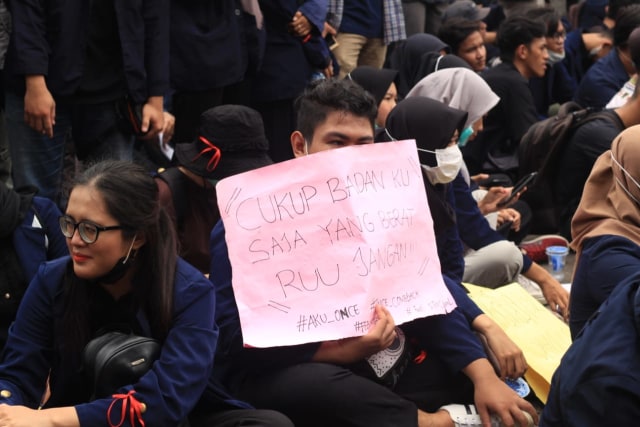 "CUKUP BADAN KU
SAJA YANG BERAT
RUU JANGAN!"
#AKU_ONCE